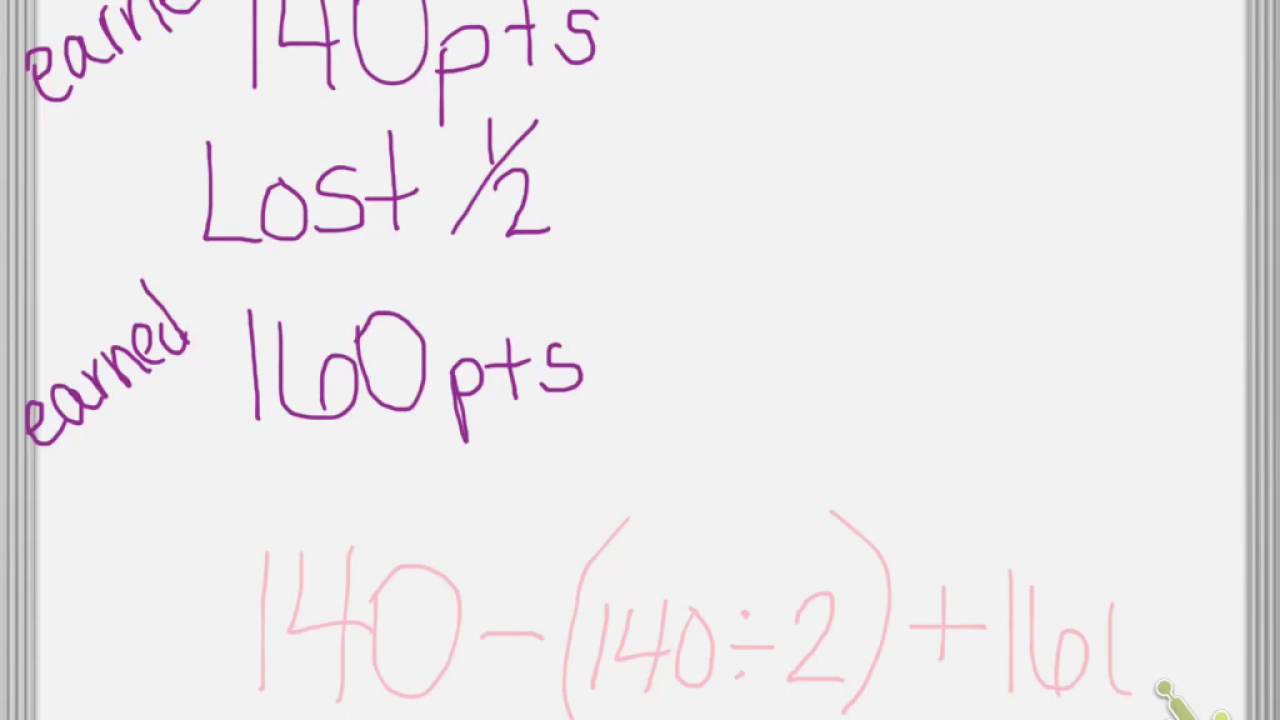 earned 140pts
Lost 1/2
earned 160pts
140 - (140 ÷ 2) + 16